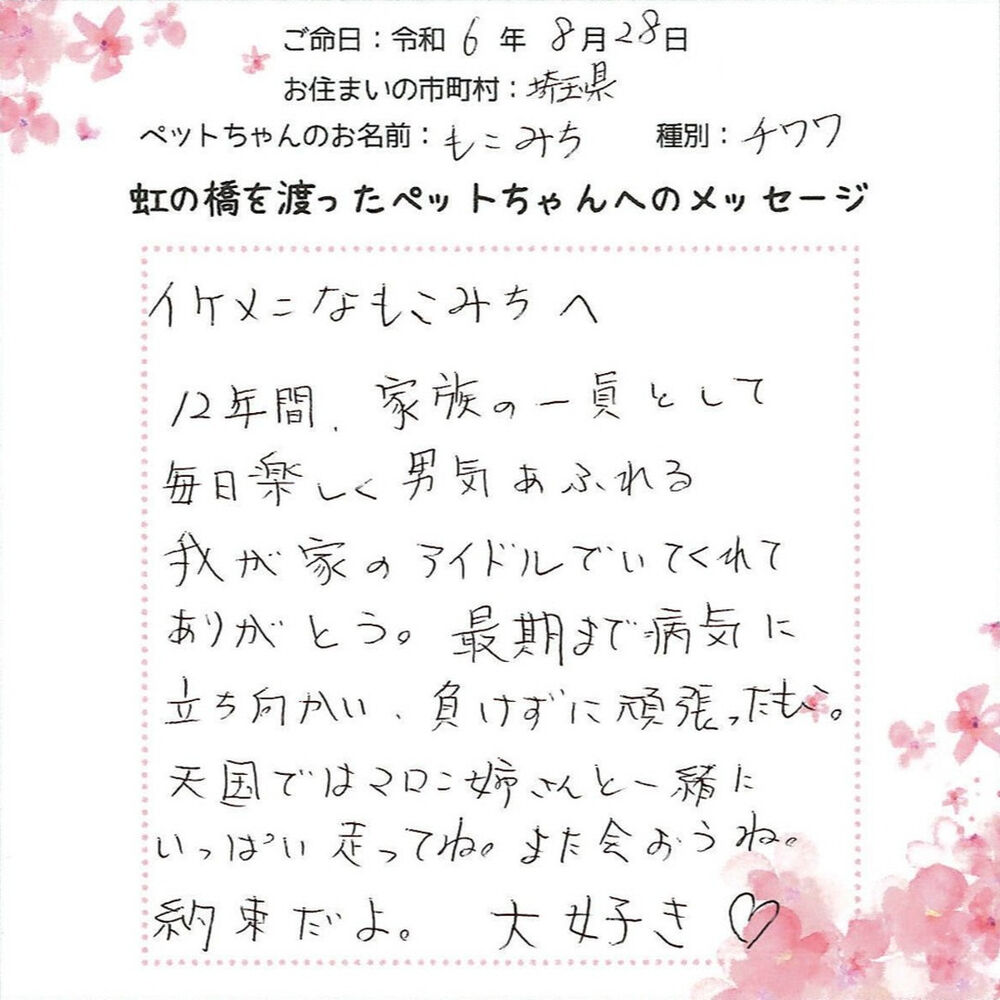 ご命日：令和 6 年 8月28日
お住まいの市町村：埼玉県
ペットちゃんのお名前：もこみち 種別：チワワ
虹の橋を渡ったペットちゃんへのメッセージ
イケメンなもこみちへ
12年間、家族の一員として
毎日楽しく男気あふれる
我が家のアイドルでいてくれて
ありがとう。最期まで病気に
立ち向かい、負けずに頑張ったもこ。
天国ではマロン姉さんと一緒に
いっぱい走ってね。また会おうね。
約束だよ。 大好き♡